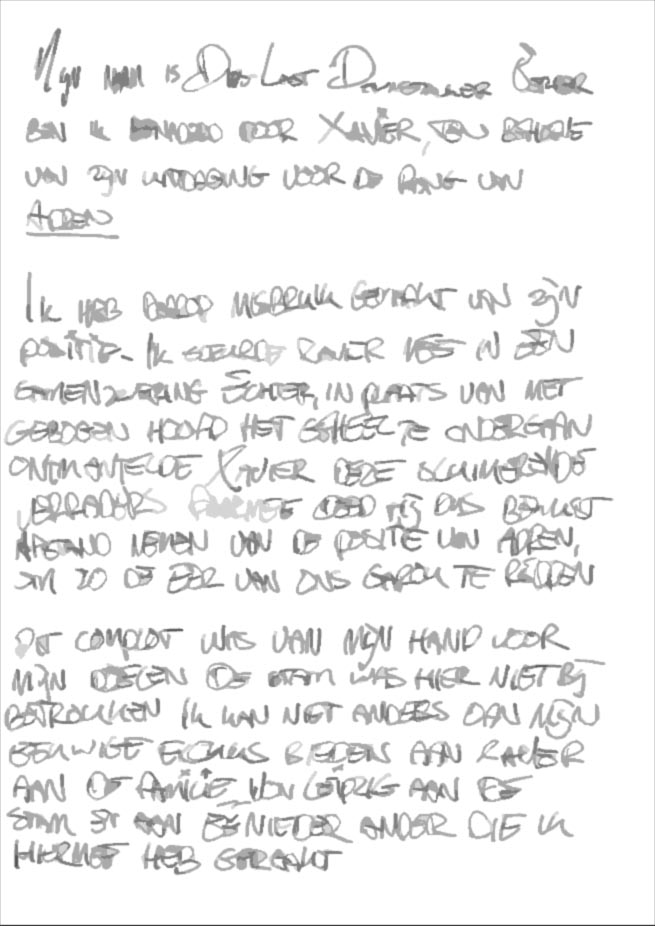 Mijn naam is Das Last
ben ik benaderd door Xavier, ten behoeve
van zijn uitdaging voor de rang van
Adren
Ik heb daarop misbruik gemaakt van zijn
positie. Ik stuurde Xavier in een
samenzwering Echter, in plaats van met
gebogen hoofd het geheel te ondergaan
ontmantelde Xavier deze schimmerende
verraders deed hij dus bewust
afstand nemen van de positie van Adren,
om zo de eer van ons Garou te redden
Dit complot was van mijn hand voor
mijn doelen De stam was hier niet bij
betrokken Ik kan niet anders dan mijn
eeuwige excuus bieden aan Xavier
aan de familie von Leipzig aan de
stam en aan een ieder ander die ik
hiermee heb geraakt